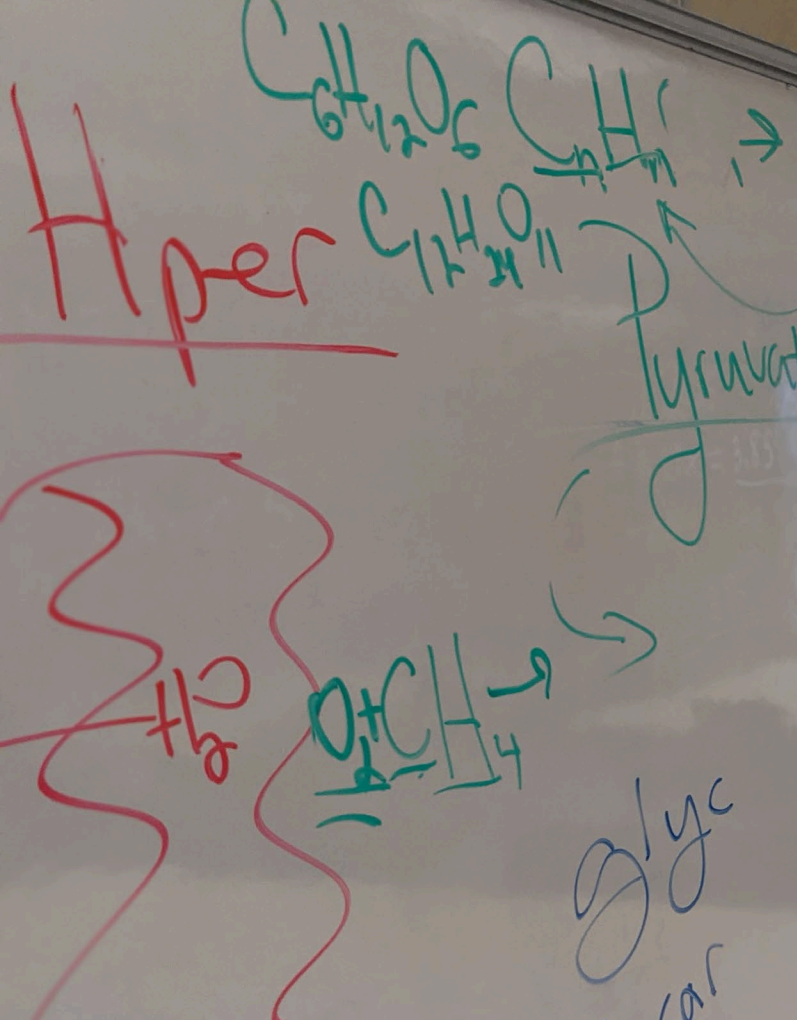 C₆H₁₂O₆ CₙHₘ →
Hper C₁₂H₂₄O₁₁
Pyruvat
H₂O O₂+CH₄ →
glyc
car